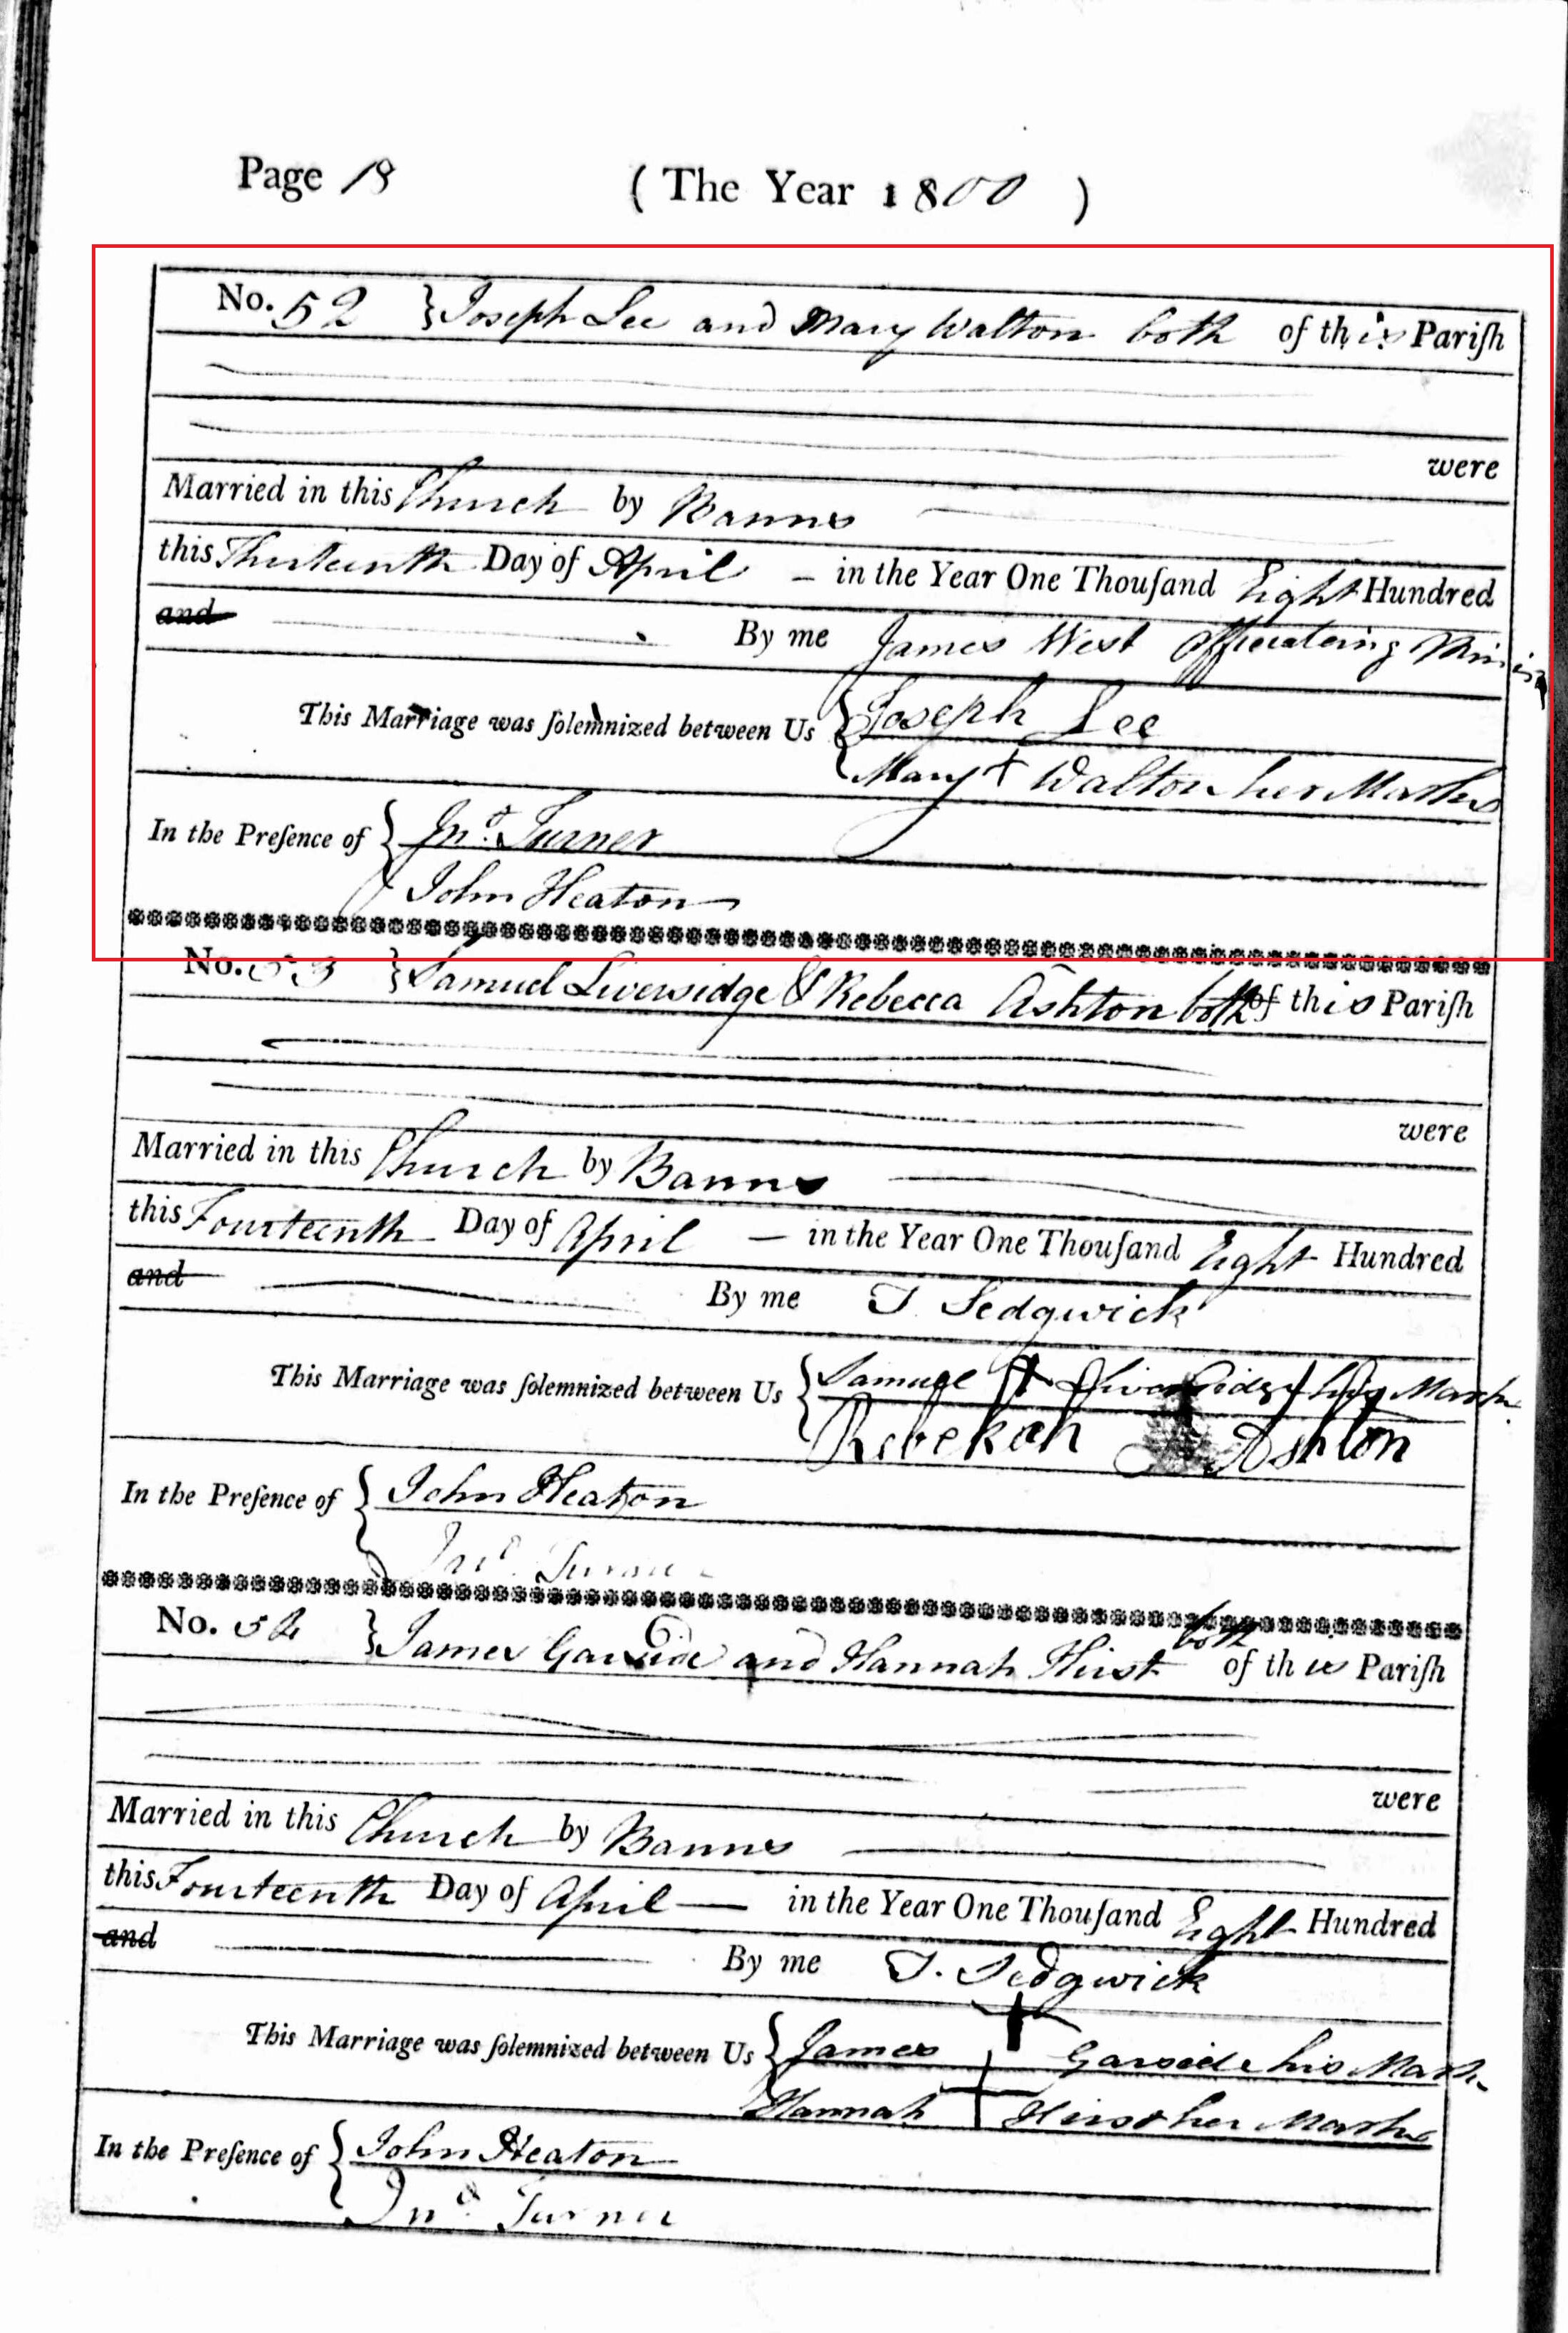 Page 18 ( The Year 1800 )
No. 52 } Joseph Lee and Mary Walton both of this Pariſh
were
Married in this Church by Banns
this Thirteenth Day of April – in the Year One Thouſand Eight Hundred
and By me James West Officiating Minis
This Marriage was ſolemnized between Us { Joseph Lee
Mary + Walton her Marke
In the Preſence of { Jno. Turner
John Heaton
No. 53 } Samuel Liversidge & Rebecca Ashton both of this Pariſh
were
Married in this Church by Banns
this Fourteenth Day of April – in the Year One Thouſand Eight Hundred
and By me T. Sedgwick
This Marriage was ſolemnized between Us { Samuel + Liversidge his Mark
Rebekah Ashton
In the Preſence of { John Heaton
Jno. Turner
No. 54 } James Garside and Hannah Hirst both of this Pariſh
were
Married in this Church by Banns
this Fourteenth Day of April — in the Year One Thouſand Eight Hundred
and By me T. Sedgwick
This Marriage was ſolemnized between Us { James + Garside his Mark
Hannah + Hirst her Marke
In the Preſence of { John Heaton
Jno. Turner